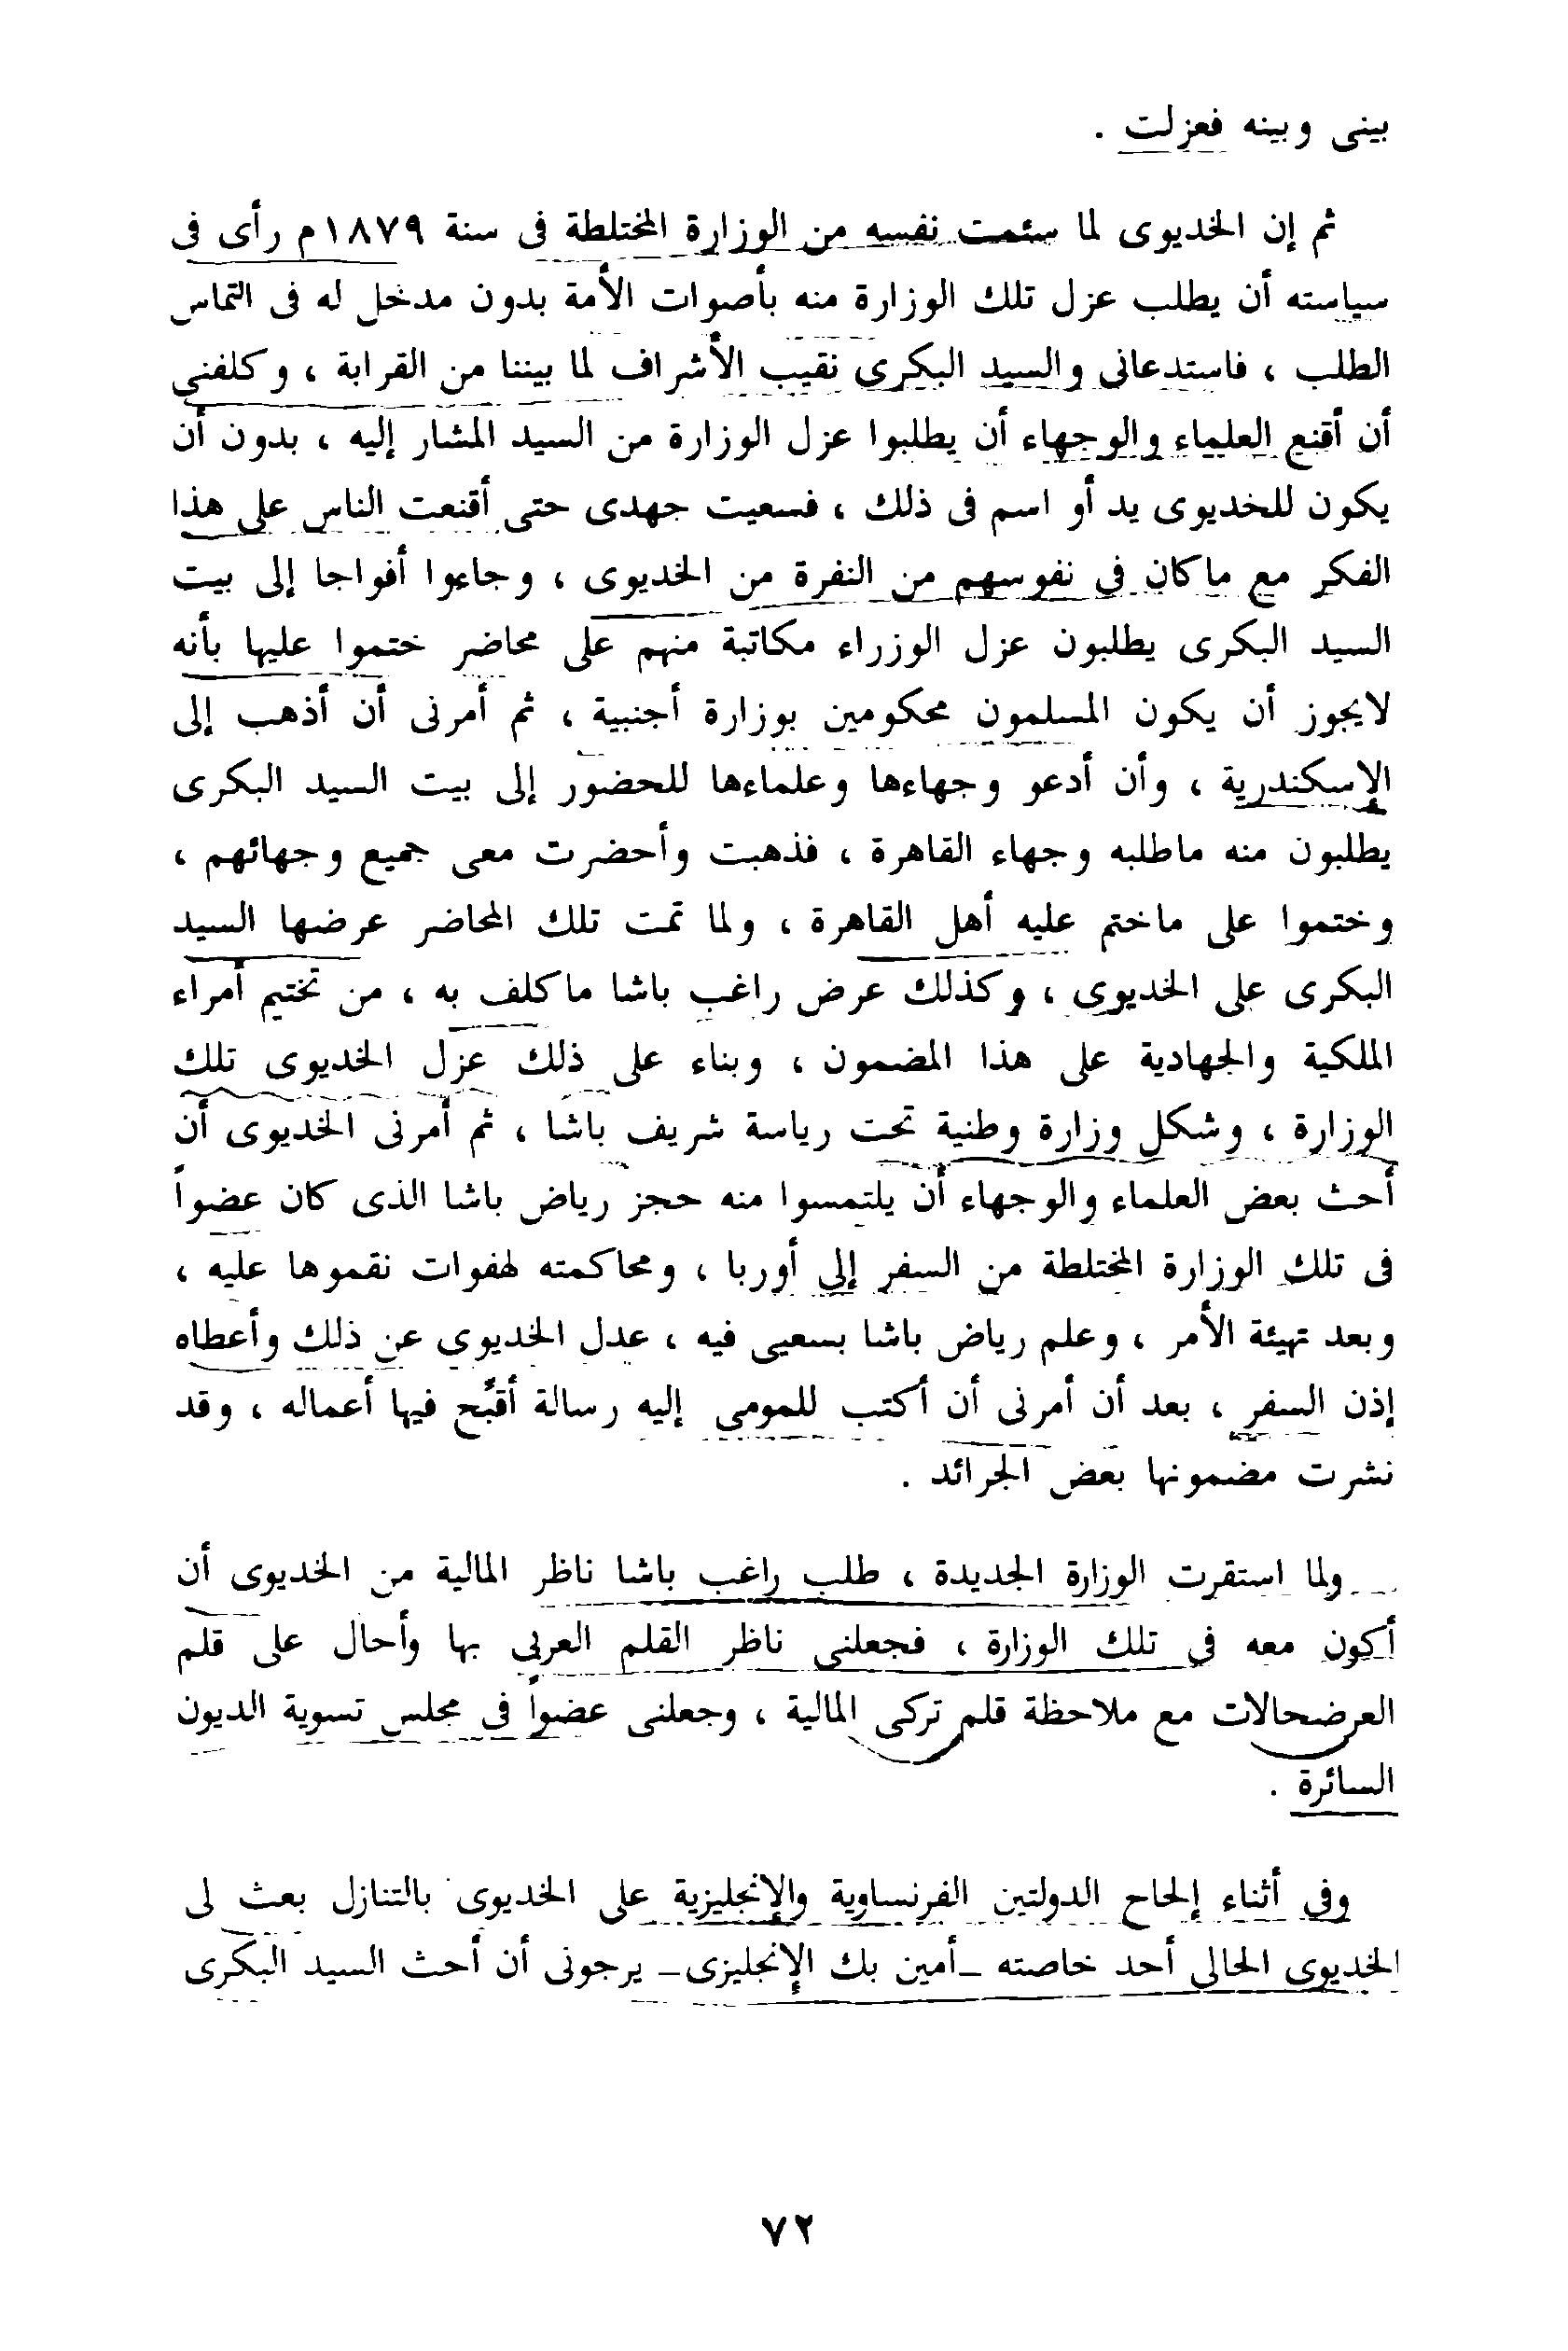 بينى وبينه فعزلت .
ثم إن الخديوى لما سئمت نفسه من الوزارة المختلطة فى سنة ١٨٧٩م رأى فى
سياسته أن يطلب عزل تلك الوزارة منه بأصوات الأمة بدون مدخل له فى التماس
الطلب ، فاستدعانى والسيد البكرى نقيب الأشراف لما بيننا من القرابة ، وكلفنى
أن أقنع العلماء والوجهاء أن يطلبوا عزل الوزارة من السيد المشار إليه ، بدون أن
يكون للخديوى يد أو اسم فى ذلك ، فسعيت جهدى حتى أقنعت الناس على هذا
الفكر مع ماكان فى نفوسهم من النفرة من الخديوى ، وجاءوا أفواجا إلى بيت
السيد البكرى يطلبون عزل الوزراء مكاتبة منهم على محاضر ختموا عليها بأنه
لايجوز أن يكون المسلمون محكومين بوزارة أجنبية ، ثم أمرنى أن أذهب إلى
الإسكندرية ، وأن أدعو وجهاءها وعلماءها للحضور إلى بيت السيد البكرى
يطلبون منه ماطلبه وجهاء القاهرة ، فذهبت وأحضرت معى جميع وجهائهم ،
وختموا على ماختم عليه أهل القاهرة ، ولما تمت تلك المحاضر عرضها السيد
البكرى على الخديوى ، وكذلك عرض راغب باشا ماكلف به ، من تختيم أمراء
الملكية والجهادية على هذا المضمون ، وبناء على ذلك عزل الخديوى تلك
الوزارة ، وشكل وزارة وطنية تحت رياسة شريف باشا ، ثم أمرنى الخديوى أن
أحث بعض العلماء والوجهاء أن يلتمسوا منه حجز رياض باشا الذى كان عضواً
فى تلك الوزارة المختلطة من السفر إلى أوربا ، ومحاكمته لهفوات نقموها عليه ،
وبعد تهيئة الأمر ، وعلم رياض باشا بسعيى فيه ، عدل الخديوى عن ذلك وأعطاه
إذن السفر ، بعد أن أمرنى أن أكتب للمومى إليه رسالة أقبِّح فيها أعماله ، وقد
نشرت مضمونها بعض الجرائد .
ولما استقرت الوزارة الجديدة ، طلب راغب باشا ناظر المالية من الخديوى أن
أكون معه فى تلك الوزارة ، فجعلنى ناظر القلم العربى بها وأحال على قلم
العرضحالات مع ملاحظة قلم تركى المالية ، وجعلنى عضواً فى مجلس تسوية الديون
السائرة .
وفى أثناء إلحاح الدولتين الفرنساوية والإنجليزية على الخديوى بالتنازل بعث لى
الخديوى الحالى أحد خاصته _أمين بك الإنجليزى_ يرجونى أن أحث السيد البكرى
٧٢